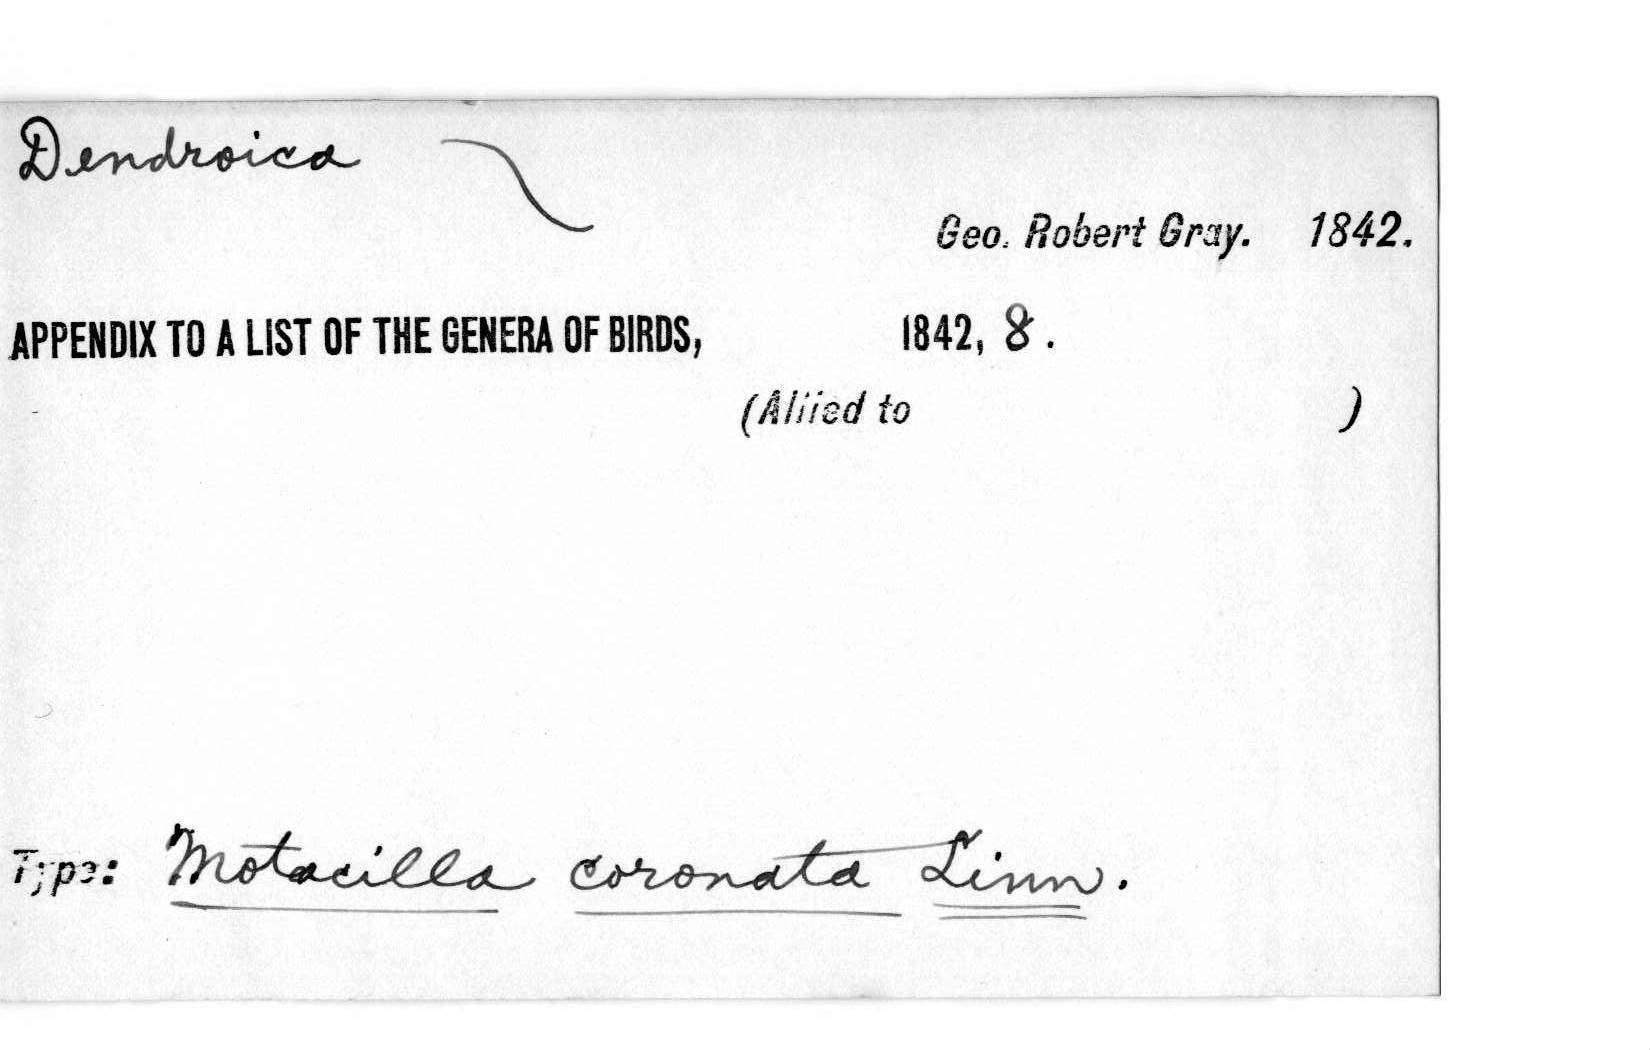 Dendroica
Geo. Robert Gray. 1842.
APPENDIX TO A LIST OF THE GENERA OF BIRDS, 1842, 8.
(Allied to )
Type: Motacilla coronata Linn.